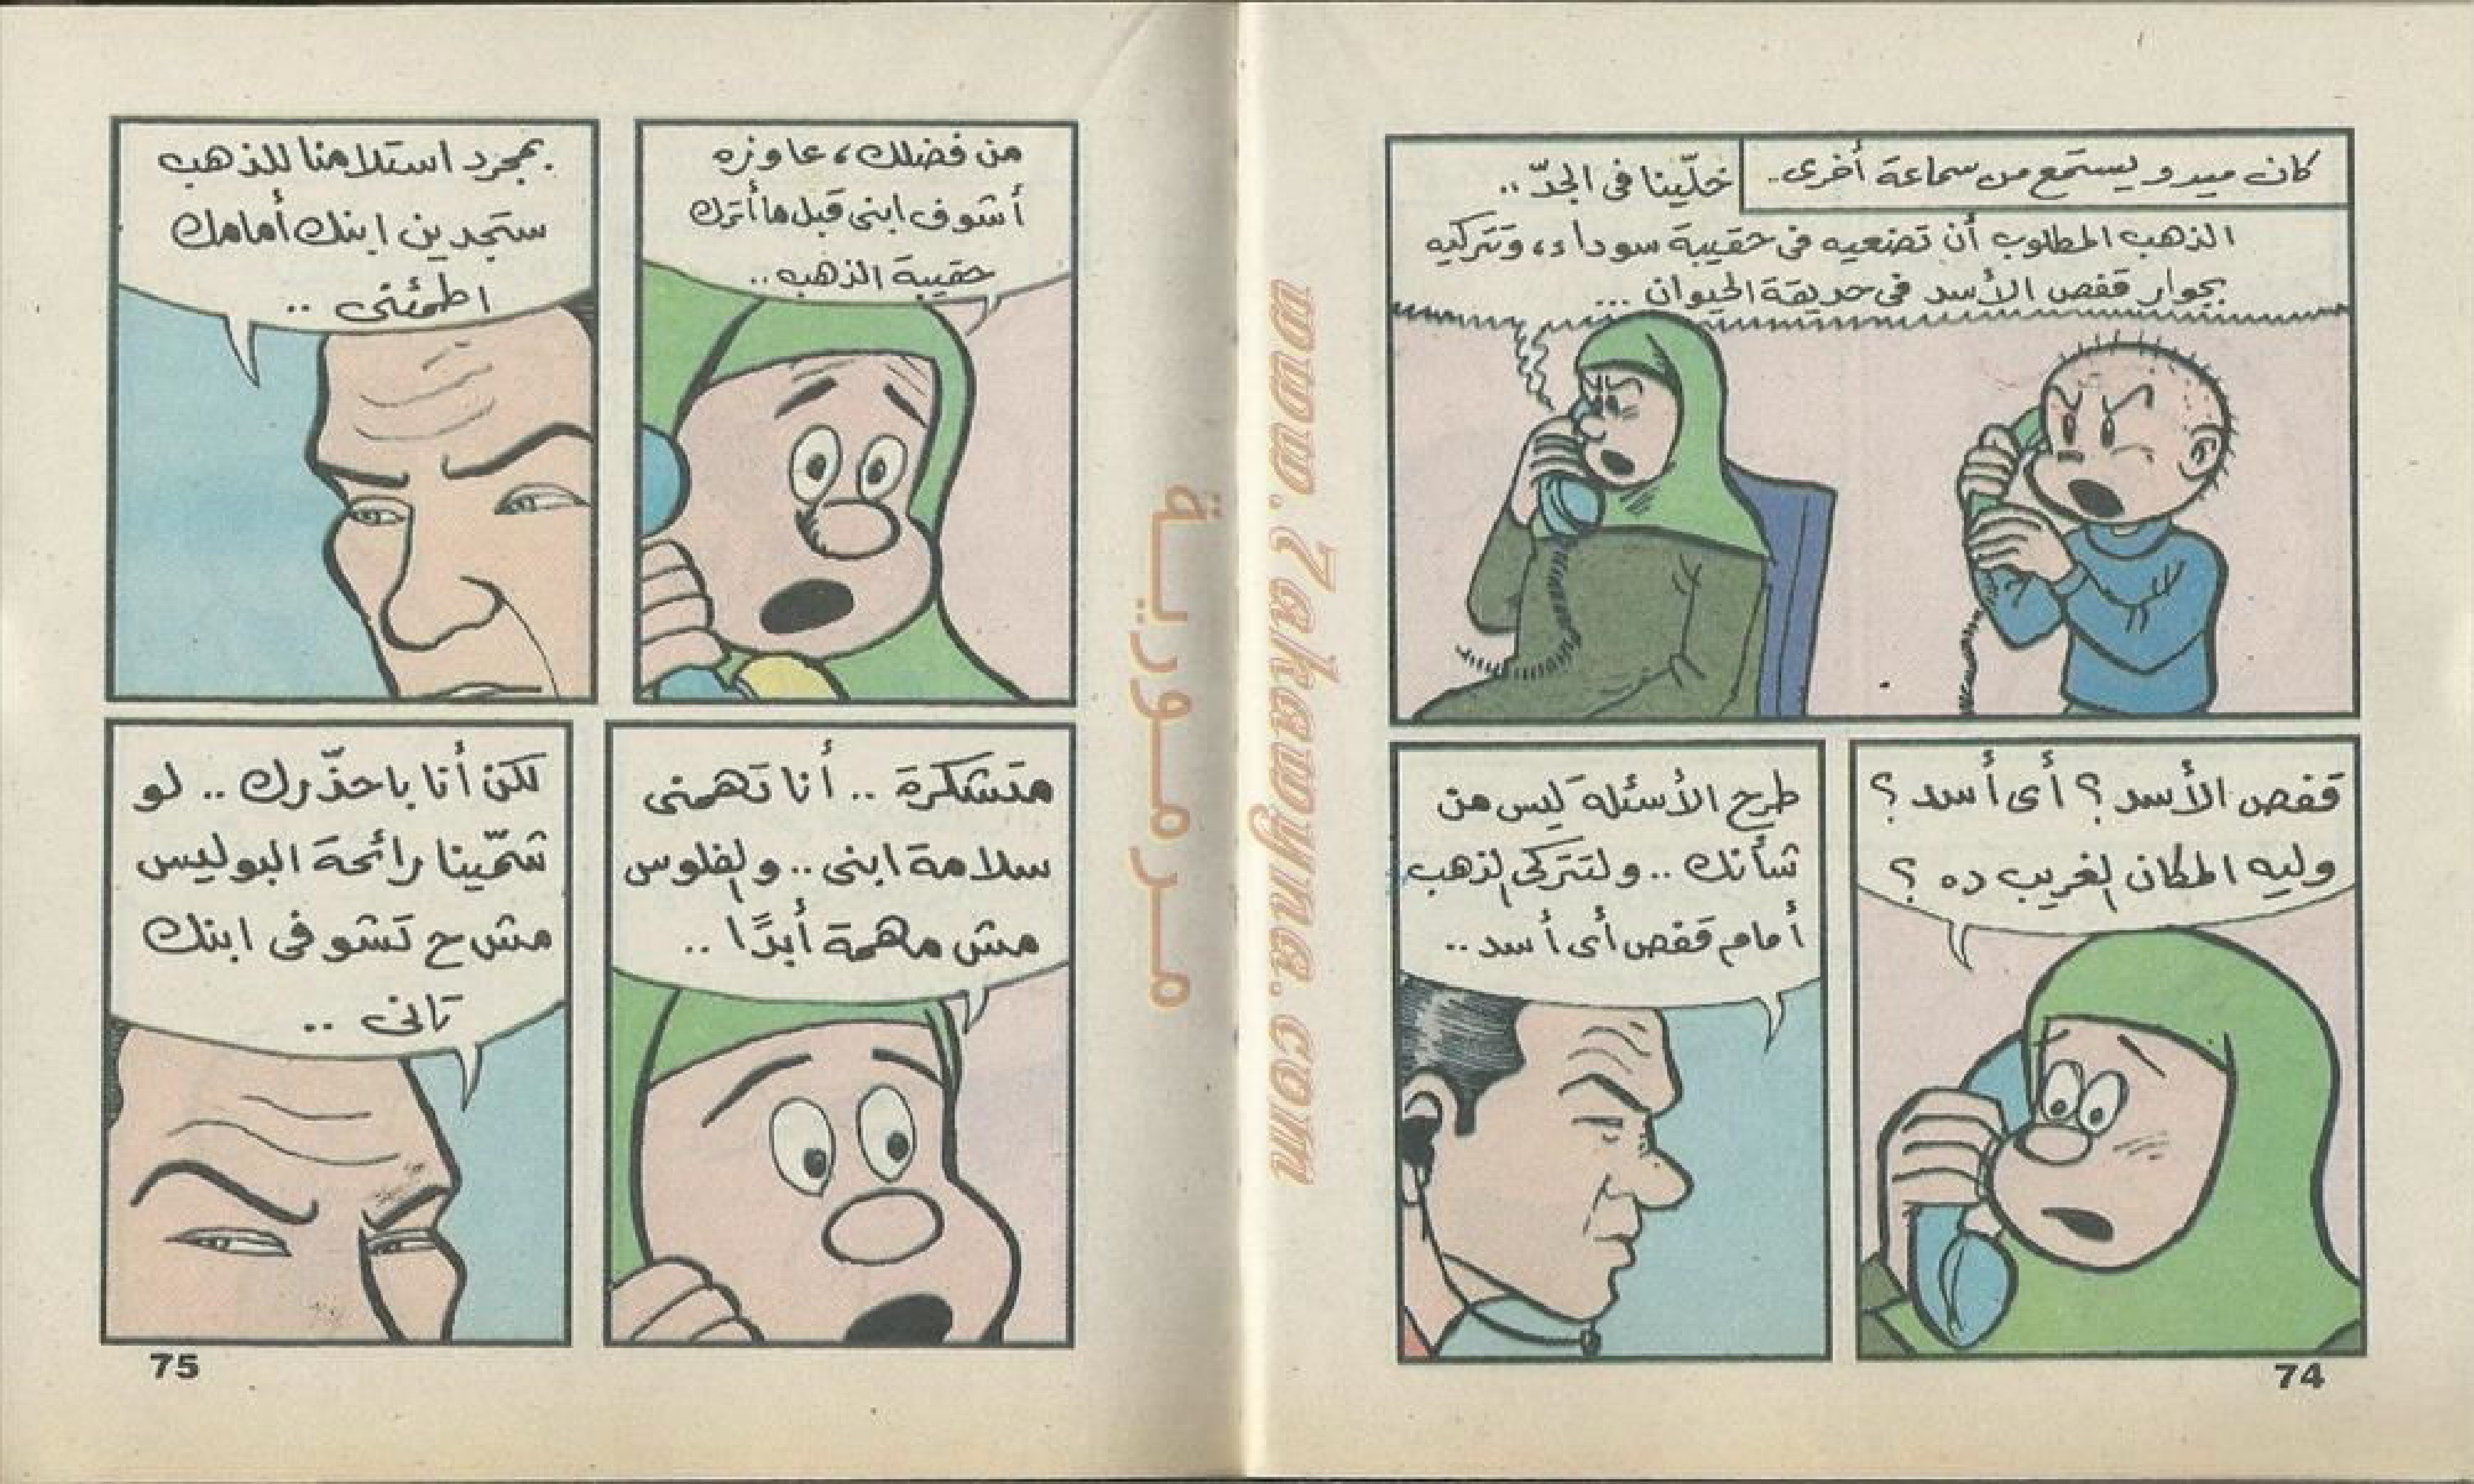 كان ميدو يستمع من سماعة أخرى..
خلّينا فى الجدّ..
الذهب المطلوب أن تضعيه فى حقيبة سوداء، وتتركيه
بجوار قفص الأسد فى حديقة الحيوان ...
قفص الأسد؟ أى أسد؟
وليه المكان الغريب ده؟
طرح الأسئلة ليس من
شأنك .. ولتتركى الذهب
أمام قفص أى أسد ..
74
من فضلك، عاوزه
أشوف ابنى قبل ما أترك
حقيبة الذهب ..
بمجرد استلامنا للذهب
ستجدين ابنك أمامك
اطمئنى ..
متشكرة .. أنا تهمنى
سلامة ابنى .. والفلوس
مش مهمة أبدًا ..
لكن أنا باحذّرك .. لو
شمّينا رائحة البوليس
مش ح تشوفى ابنك
تانى ..
75
www.7akawyna.com
مرمورية